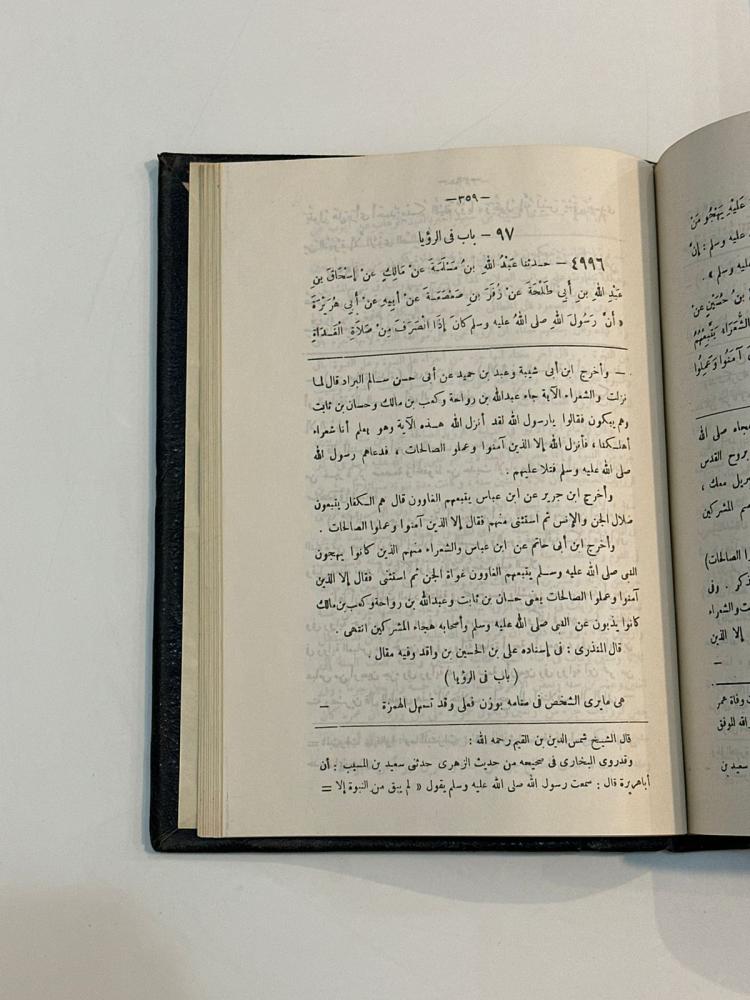 — ٣٥٩ —
٩٧ — باب فى الرؤيا
٤٩٩٦ — حدثنا عَبْدُ اللهِ بنُ مَسْلَمَةَ عنْ مَالِكٍ عنْ إِسْحَاقَ بنِ
عَبْدِ اللهِ بنِ أَبِي طَلْحَةَ عنْ زُفَرَ بنِ صَعْصَعَةَ عنْ أَبِيهِ عنْ أَبِي هُرَيْرَةَ
« أَنَّ رَسُولَ اللهِ صلى اللهُ عليه وسلم كَانَ إِذَا انْصَرَفَ مِنْ صَلَاةِ الْغَدَاةِ
— وأخرج ابن أبى شيبة وعبد بن حميد عن أبى حسن سالم البراد قال لما
نزلت والشعراء الآية جاء عبدالله بن رواحة وكعب بن مالك وحسان بن ثابت
وهم يبكون فقالوا يارسول الله لقد أنزل الله هذه الآية وهو يعلم أنا شعراء
أهلكنا ، فأنزل الله إلا الذين آمنوا وعملو الصالحات ، فدعاهم رسول الله
صلى الله عليه وسلم فتلا عليهم .
وأخرج ابن جرير عن ابن عباس يتبعهم الغاوون قال هم الكفار يتبعون
ضلال الجن والإنس ثم استثنى منهم فقال إلا الذين آمنوا وعملوا الصالحات .
وأخرج ابن أبى حاتم عن ابن عباس والشعراء منهم الذين كانوا يهجون
النبى صلى الله عليه وسلم يتبعهم الغاوون غواة الجن ثم استثنى فقال إلا الذين
آمنوا وعملوا الصالحات يعنى حسان بن ثابت وعبدالله بن رواحة وكعب بن مالك
كانوا يذبون عن النبى صلى الله عليه وسلم وأصحابه هجاء المشركين انتهى .
قال المنذرى : فى إسناده على بن الحسين بن واقد وفيه مقال .
( باب فى الرؤيا )
هى مايرى الشخص فى منامه بوزن فعلى وقد تسهل الهمزة —
قال الشيخ شمس الدين بن القيم رحمه الله :
وقدروى البخارى فى صحيحه من حديث الزهرى حدثنى سعيد بن المسيب : أن
أباهريرة قال : سمعت رسول الله صلى الله عليه وسلم يقول « لم يبق من النبوة إلا =
عَلَيْهِ يَهْجُو مَنْ
عليه وسلم : إنَّ
عليه وسلم » .
بنُ حُسَيْنٍ عنْ
الشُّعَرَاءُ يَتَّبِعُهُمْ
آمَنُوا وَعَمِلُوا
هجاء صلى الله
بروح القدس
جبريل معك ،
المشركين
الصالحات )
ذكر . وفى
والشعراء
إلا الذين
—
وفاة عمر
الله الموفق
سعيد بن